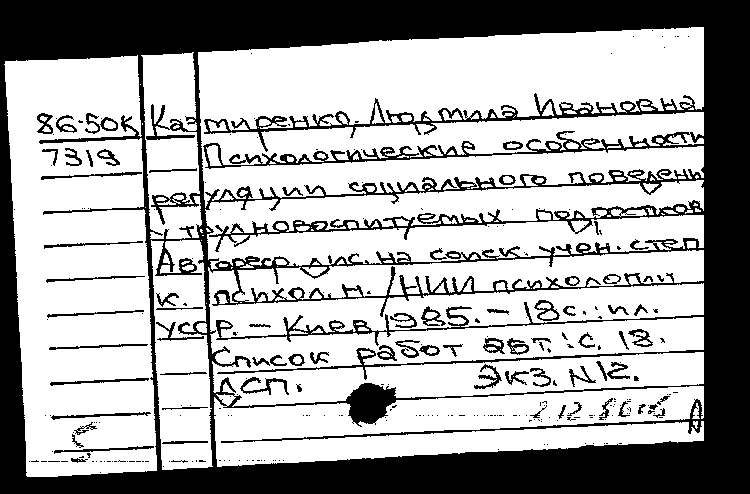 86-50К Казмиренко, Людмила Ивановна.
7319 Психологические особенности
регуляции социального поведени
у трудновоспитуемых подростков
Автореф. дис. на соиск. учен. степ
к. психол. н. /НИИ психологии
УССР. - Киев, 1985. - 18с.: ил.
Список работ авт.: с. 18.
ДСП. Экз. N12.